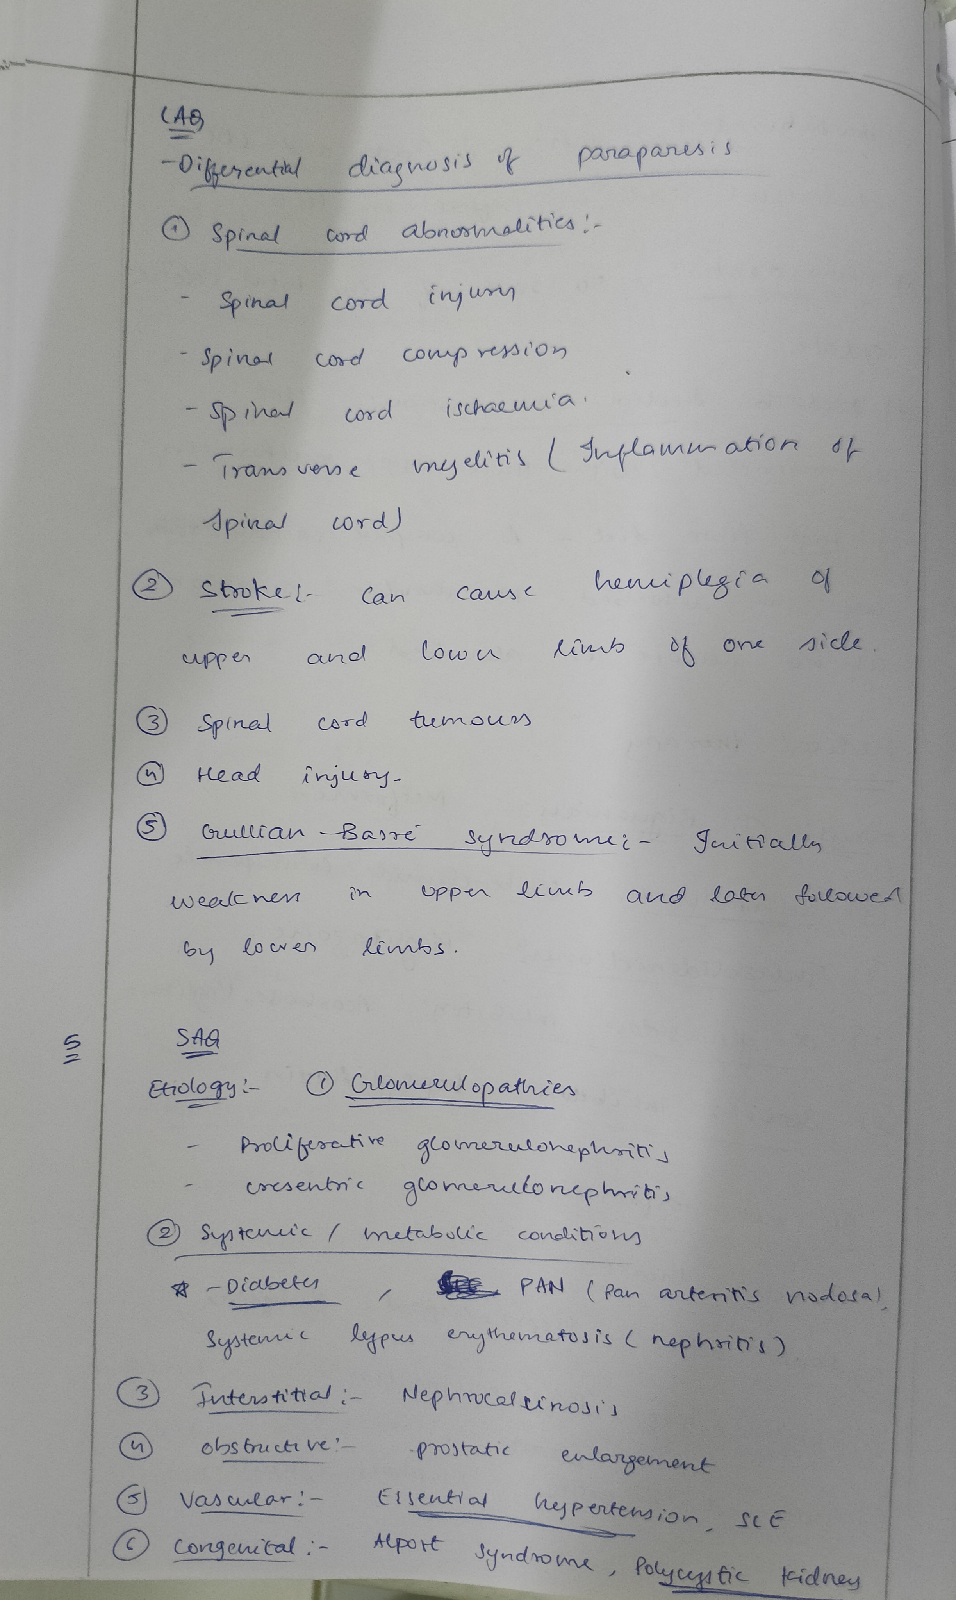 LAQ
- Differential diagnosis of paraparesis
① Spinal cord abnormalities :-
- Spinal cord injury
- Spinal cord compression
- Spinal cord ischaemia.
- Transverse myelitis ( Inflammation of
spinal cord)
② Stroke :- can cause hemiplegia of
upper and lower limb of one side.
③ Spinal cord tumours
④ Head injury -
⑤ Gullian - Barré syndrome :- Initially
weakness in upper limb and later followed
by lower limbs.
5
SAQ
Etiology :- ① Glomerulopathies
- Proliferative glomerulonephritis
- cresentric glomerulonephritis
② Systemic / metabolic conditions
* - Diabetes , PAN ( Pan arteritis nodosa),
Systemic lypus erythematosis ( nephritis)
③ Interstitial :- Nephrocalcinosis
④ obstructive :- prostatic enlargement
⑤ Vascular :- Essential hypertension, SLE
⑥ Congenital :- Alport syndrome, Polycystic kidney